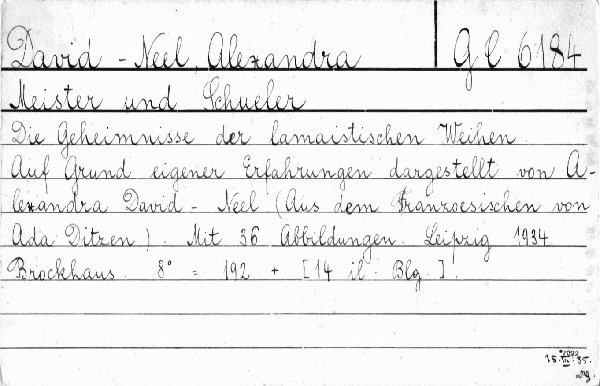 David - Neel, Alexandra Gl 6184
Meister und Schueler
Die Geheimnisse der lamaistischen Weihen.
Auf Grund eigener Erfahrungen dargestellt von A-
lexandra David - Neel (Aus dem Franzoesischen von
Ada Ditzen). Mit 36 Abbildungen. Leipzig 1934.
Brockhaus. 8° = 192 + [14 il. Blg.].
15. III. 35.